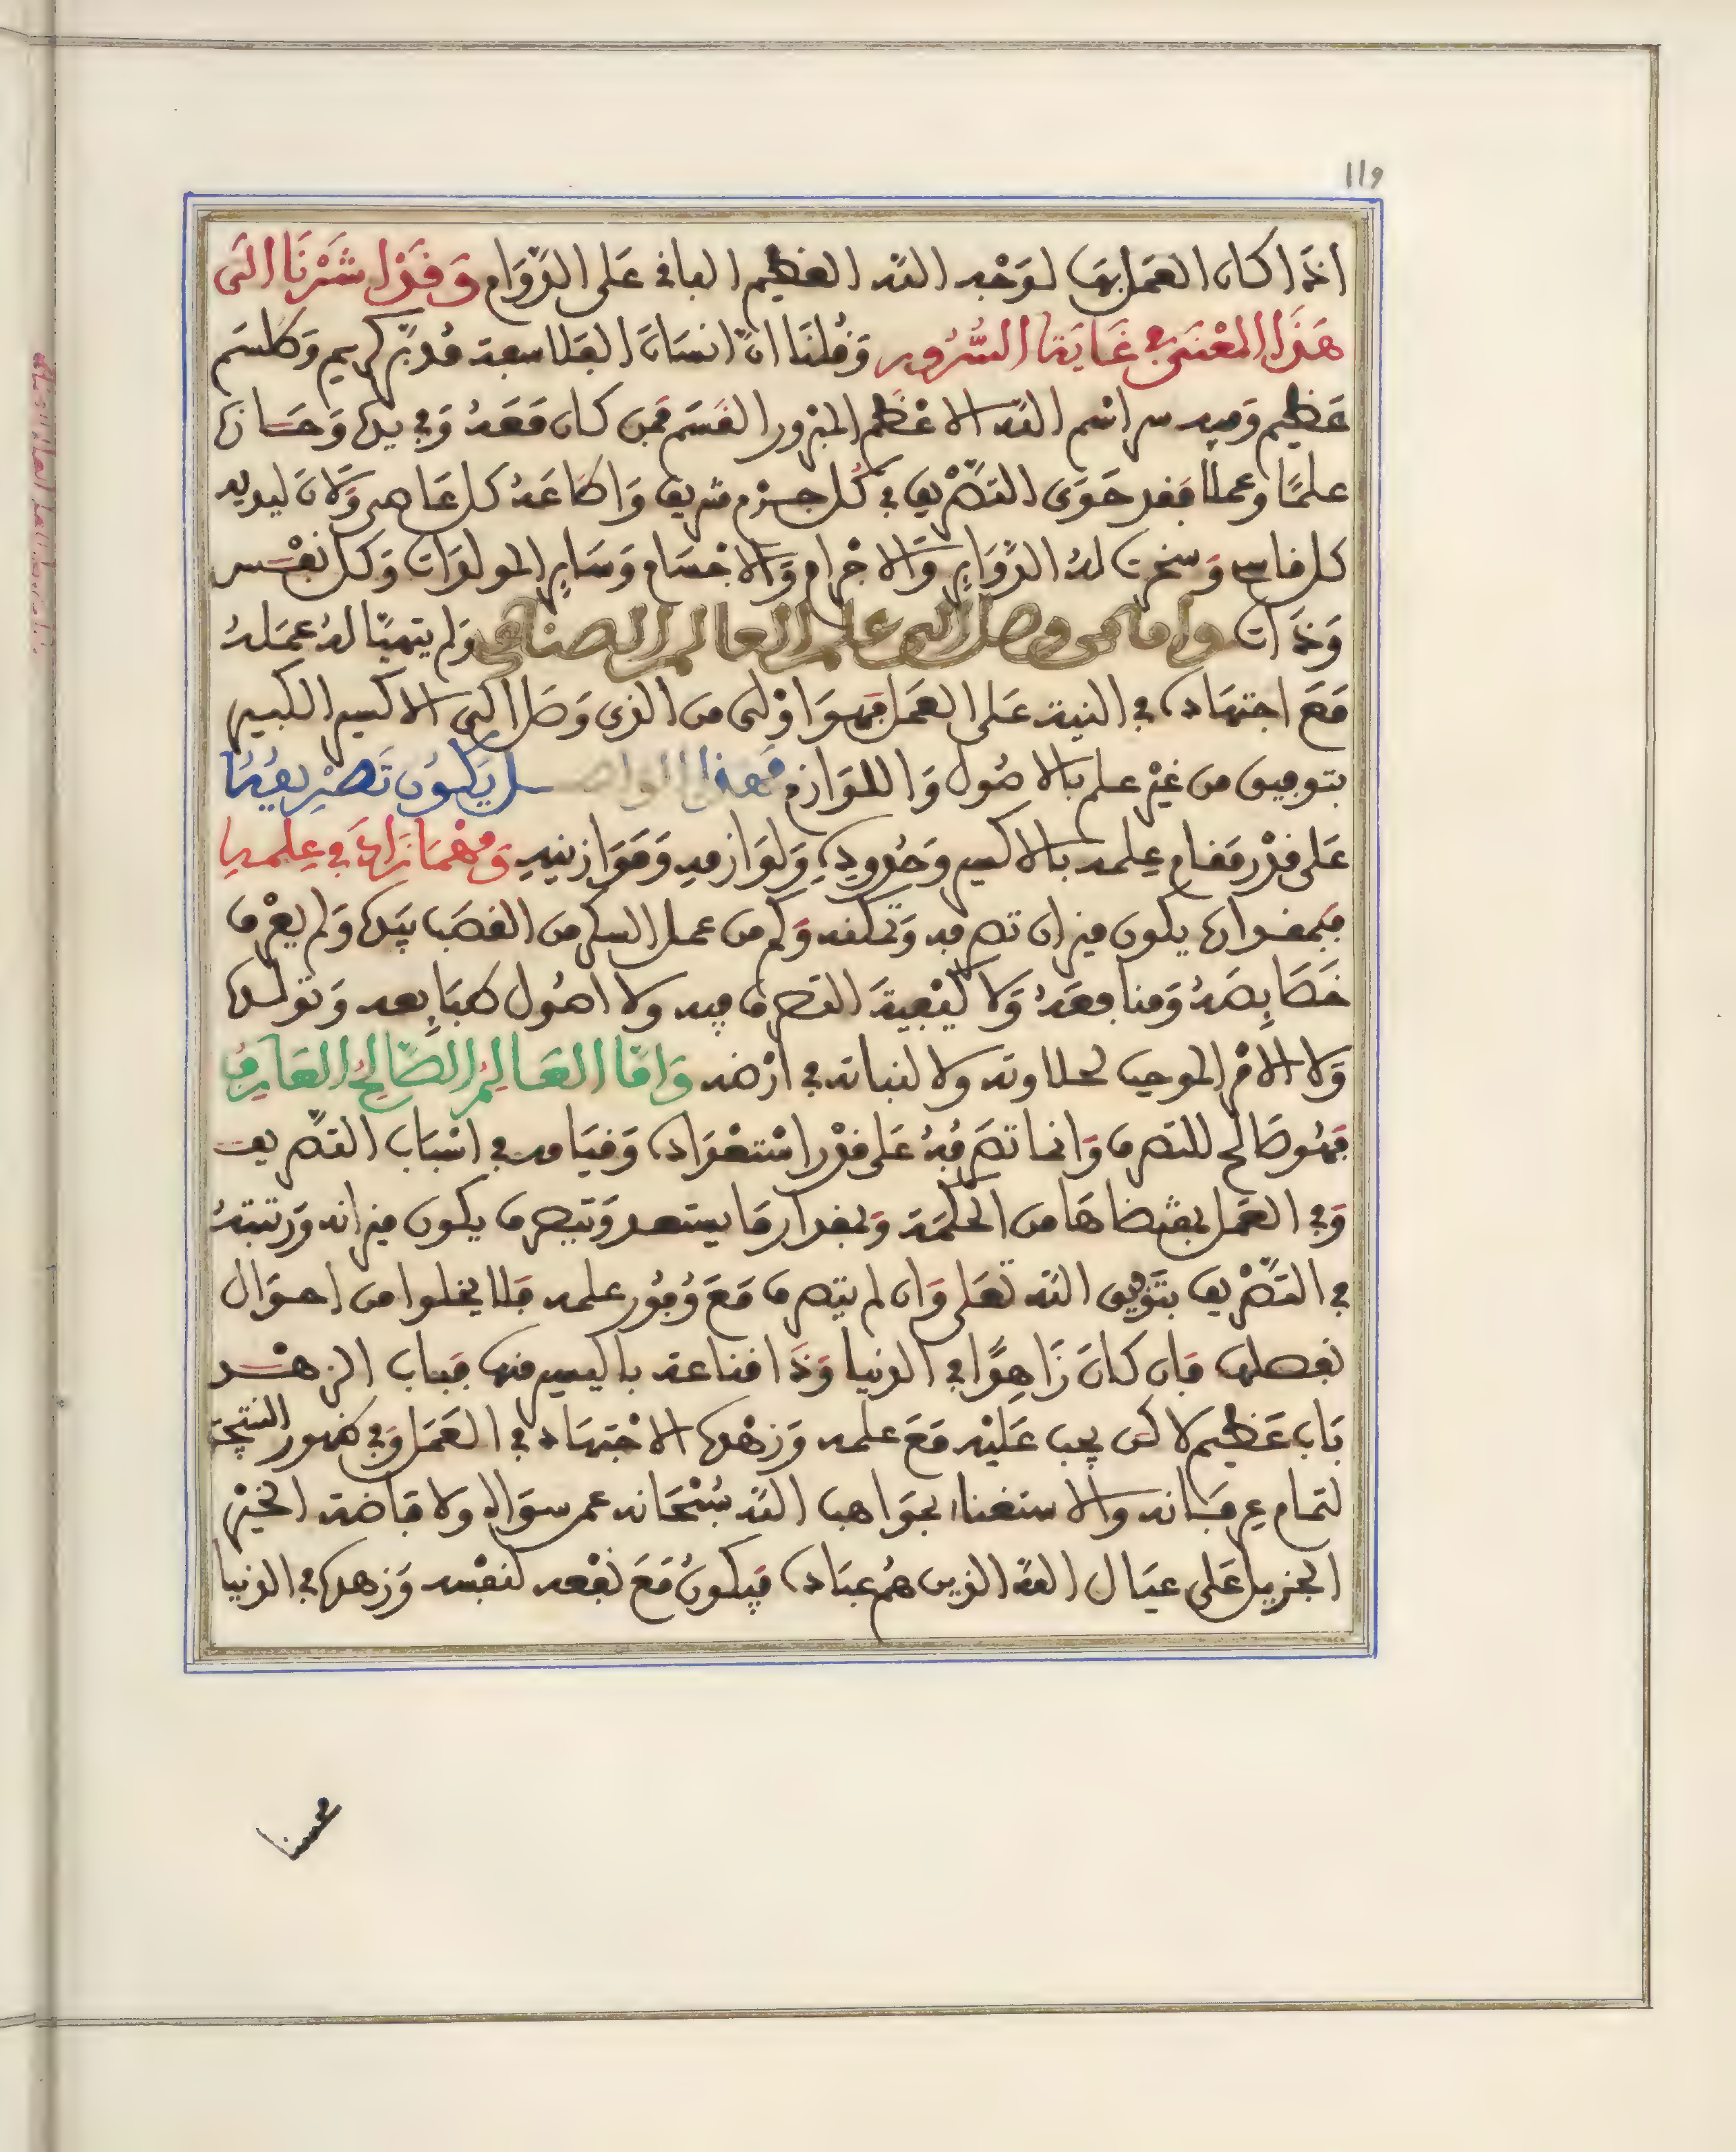 119
اذَا كان العَمل بهَا لوَجْه اللّه العَظيم الباقى عَلى الدّوَام وَقَدْ اشَرْنَا الَى
هَذَا المْعْنَى فى غَايَة السُّرُور وَقُلنَا انّ انسَانَ الفَلاسفة مُدبّر كريم وَطلسَم
عَظيم وَفيه سر اسْم اللّه الاعْظم المبْرور القسَم فمَن كان مَعَهُ وَفى يده وَحَازه
علمًا وعملا فقد حَوَى التصْريف فى كُل جزء شريف وَاطاعَهُ كل عَاص وَلانَ ليديه
كل قاس وَسخرت لهُ الدّوَاير وَالاجْرام وَالاجْسَام وَسَاير المولدَات وَكل نفْس
وَذَات وامّا من وصل الى علم العالم الصناعى وَلم يتهيّا لهُ عمَلهُ
مَعَ اجتهَاده فى النية عَلى العَمل فهوَ اوْلى من الذى وَصَل الى الاكسير الكبير
بتوفيق من غيْر علم بالاصُول وَاللوَازم فهذا الواصل يَكُون تَصْريفُهُ
عَلى قدْر مقام عِلمه بالاكسير وَحُدُودِهِ وَلوَازمهِ وَمَوَازينهِ وَمهْمَا زَادَ فى عِلمهِ
فبمقدَاره يكون ميزان تصرفه وَتمَكنه وَكم من عمل السكر من القصَب بيَده وَلم يعْرف
خَصَايصَهُ وَمنافعَهُ وَلا كيْفيةَ التصرف فيه ولا اصُول طبَايعه وَتولده
وَلا الامْر الموجب لحلاوته ولا لنباته فى ارْضه وَامّا العَالمُ الصّالحُ العَارفُ
فهُو صَالح للتصرف وَانما تصَرفُهُ عَلى قدْر اسْتعْدَاده وَقيَامه فى اسْبَاب التصّريف
وَفى العَمل بمقتضاهَا من الحكْمَة وَبمقدار مَا يستعد وَيتصرف يكون ميزانه وَرتبتهُ
فى التصّريف بتَوْفيق اللّه تعَلى وَان لم يتصرف مَعَ وُفُور علمه فلا يخلوا من احوَال
نفصلها فان كانَ زَاهِدًا فى الدنيا وَذَا قناعة باليسير منها فباب الزهْد
بَاب عَظيم لاكن يجب عَليْه مَعَ علمه وَزهْده الاجْتهَاد فى العَمَل وَفى ظهور النتيجَة
لتمام عرفَانه والاستغناء بموَاهب اللّه سُبْحَانه عمن سوَاه ولافاضة الخيْر
الجزيل عَلى عيَال اللّه الذين هُم عبَاده فيكونُ مَعَ نفْعه لنفْسه وَزهده فى الدنيا
محسنا